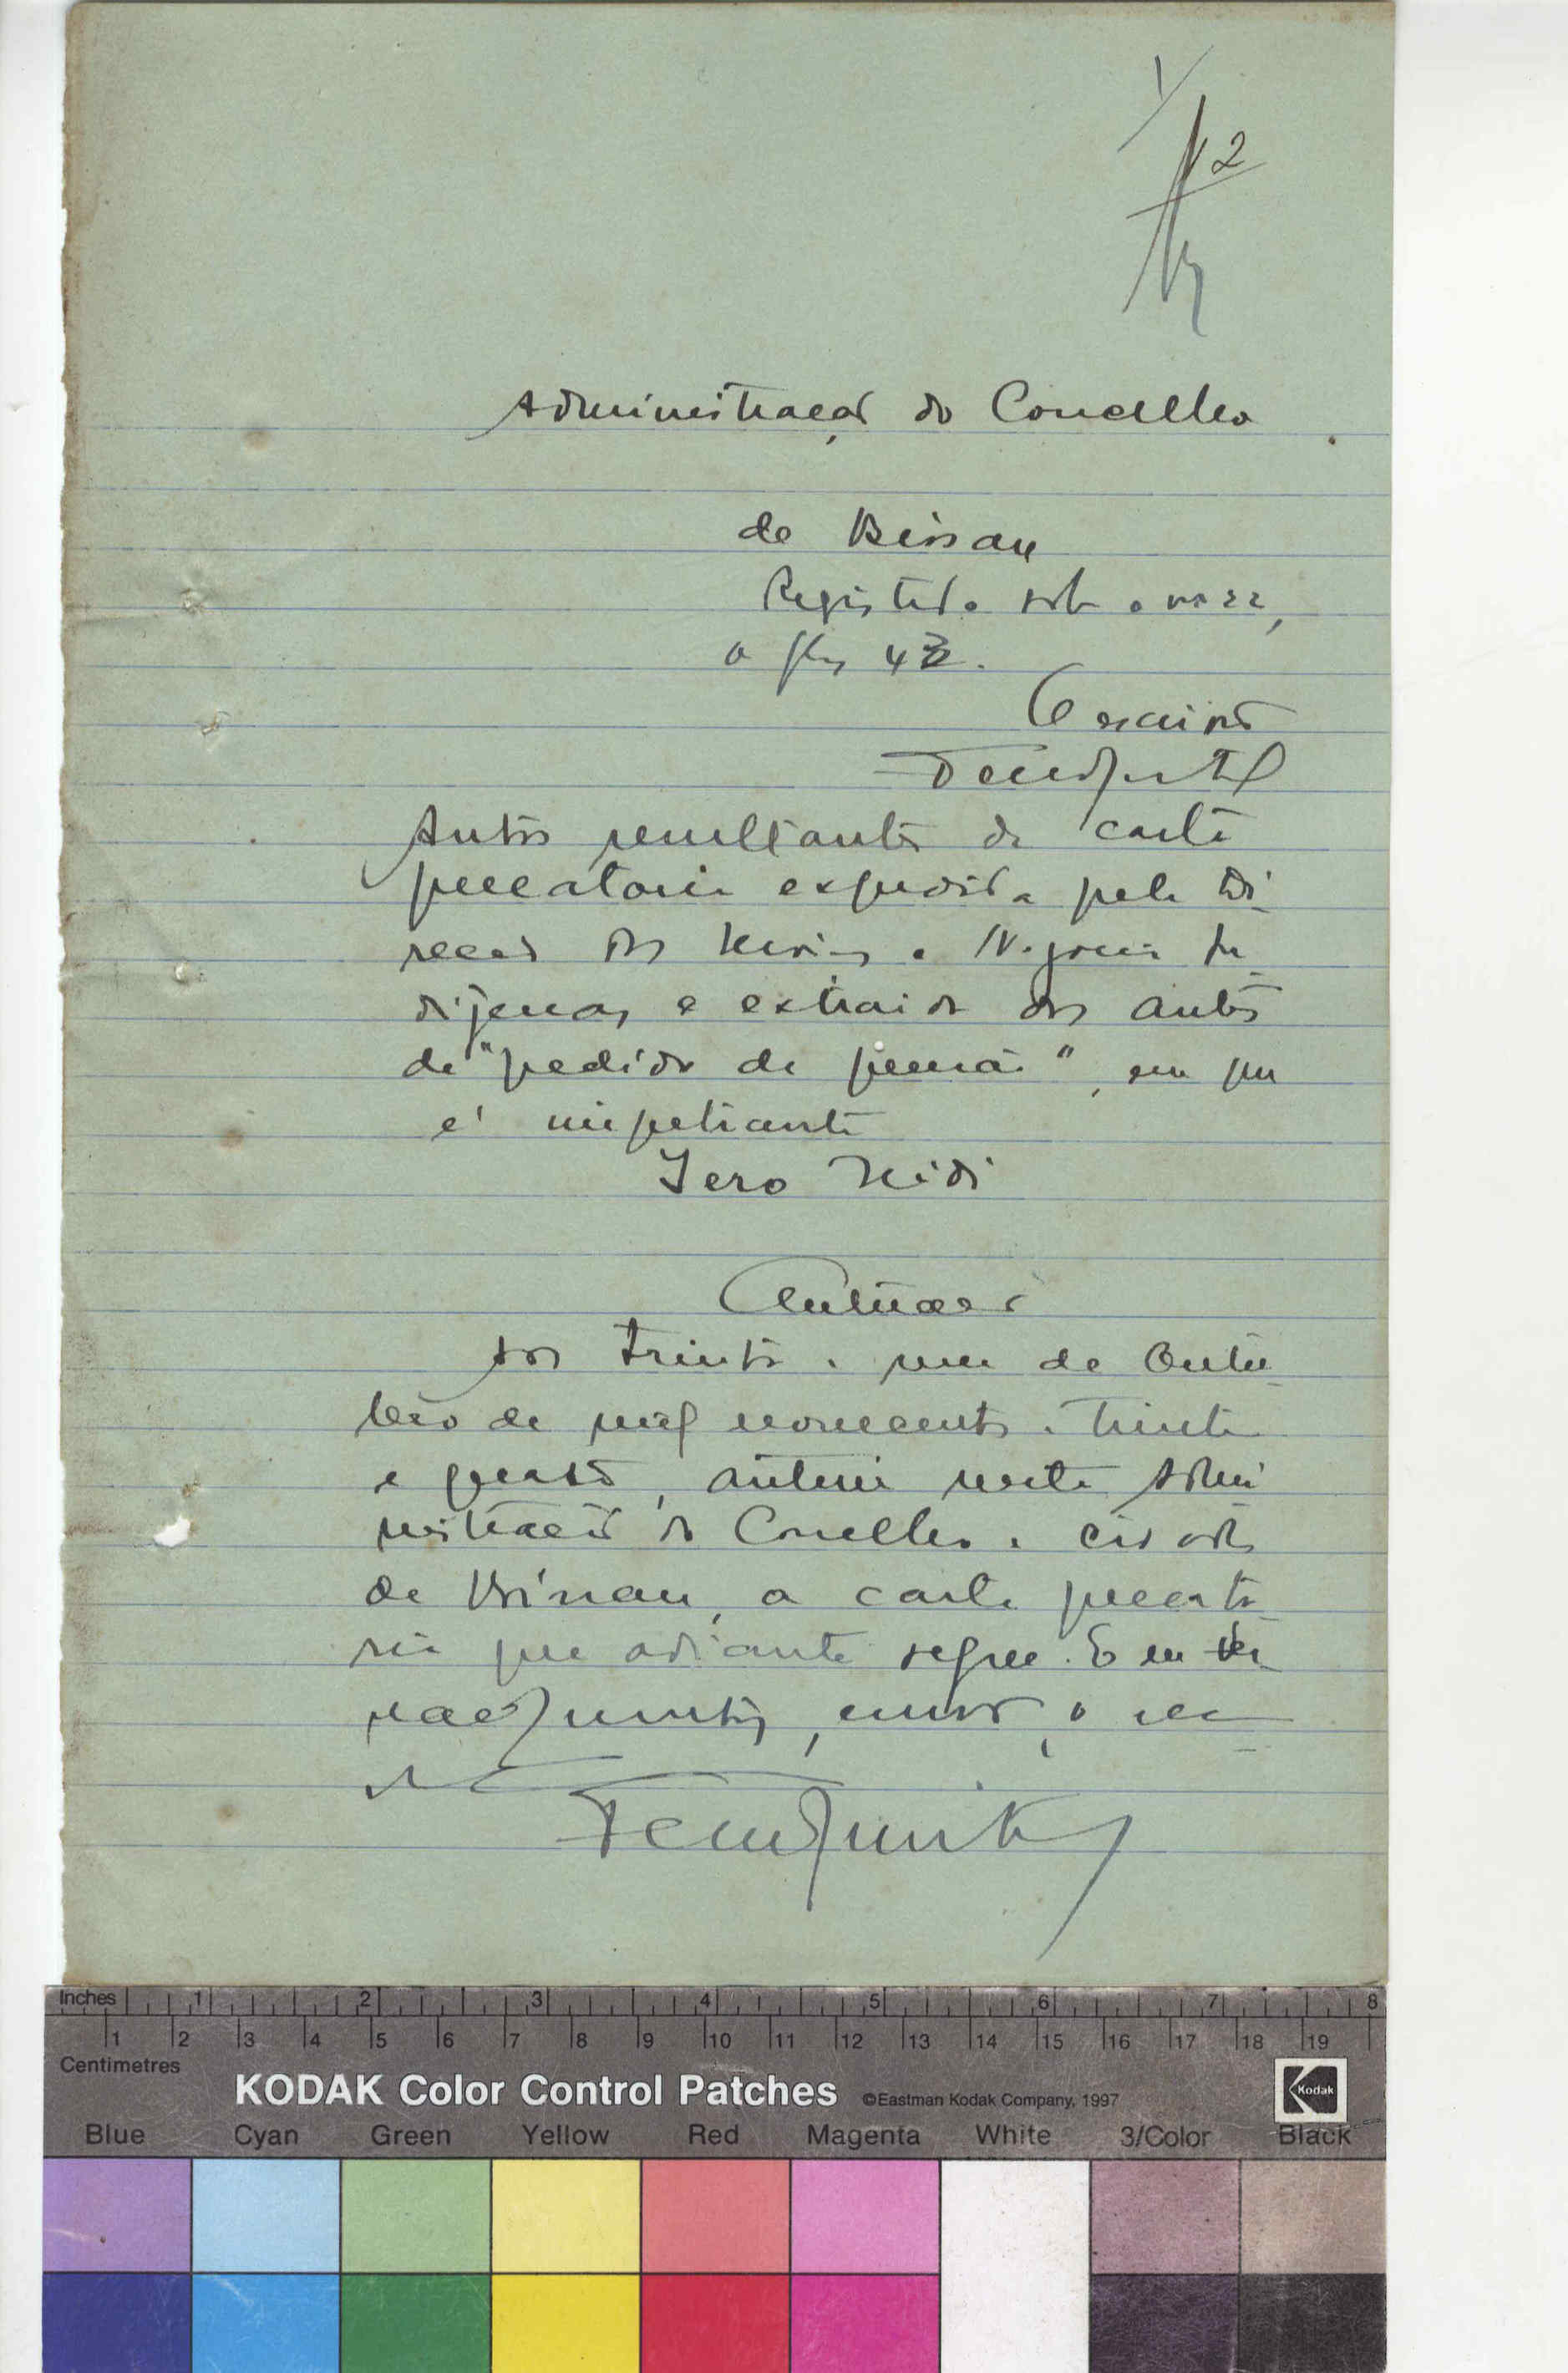 2
Administração do Concelho
de Bissau
Registado sob o nº 22,
a fls 43.
O escrivão
Autos resultantes da carta
precatoria expedida pela Di-
recção dos Serviços e Negocios In-
dijenas e extraida dos autos
de "pedido de pensão", em que
é impetrante
Iero Nidi
Autuação
Aos trinta e um de Outu-
bro de mil novecentos e trinta
e quatro, autuei nesta Admi
nistração do Concelho e cidade
de Bissau, a carta precato-
ria que adiante segue. E eu
escrivão, o
Inches 1 2 3 4 5 6 7 8
1 2 3 4 5 6 7 8 9 10 11 12 13 14 15 16 17 18 19
Centimetres
KODAK Color Control Patches ©Eastman Kodak Company, 1997
Kodak
Blue Cyan Green Yellow Red Magenta White 3/Color Black